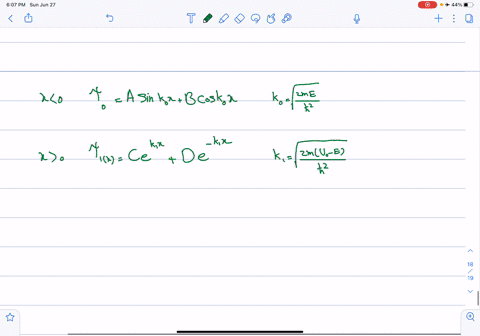 6:07 PM Sun Jun 27
44%
x<0 ψ₀ = A sin k₀x + B cos k₀x k₀ = √(2mE/ħ²)
x>0 ψ₁(x) = Ce^{k₁x} + De^{-k₁x} k₁ = √(2m(U₀-E)/ħ²)
18
/
19